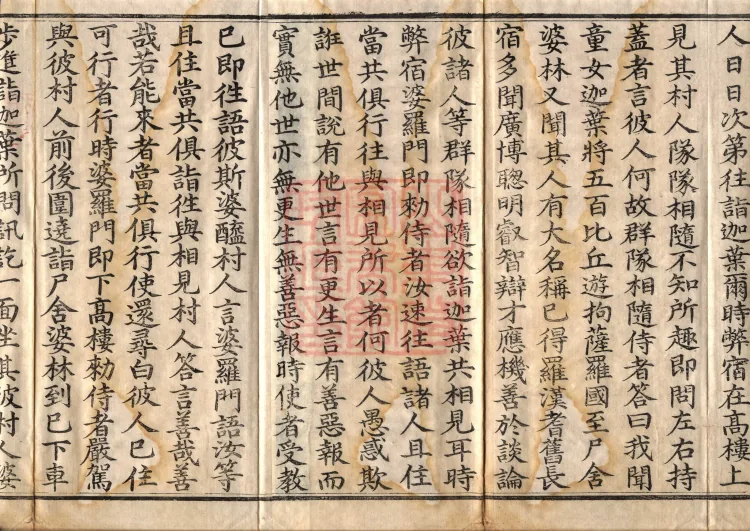 人日日次第往詣迦葉爾時弊宿在髙樓上
見其村人隊隊相隨不知所趣即問左右持
蓋者言彼人何故群隊相隨侍者荅曰我聞
童女迦葉將五百比丘遊拘薩羅國至尸舍
婆林又聞其人有大名稱已得羅漢耆舊長
宿多聞廣博聰明叡智辯才應機善於談論
彼諸人等群隊相隨欲詣迦葉共相見耳時
弊宿婆羅門即勑侍者汝速往語諸人且住
當共俱行往與相見所以者何彼人愚惑欺
誑世間說有他世言有更生言有善惡報而
實無他世亦無更生無善惡報時使者受教
已即往語彼斯婆醯村人言婆羅門語汝等
且住當共俱詣往與相見村人答言善哉善
哉若能來者當共俱行使還尋白彼人已住
可行者行時婆羅門即下髙樓勑侍者嚴駕
與彼村人前後圍遶詣尸舍婆林到已下車
步進詣迦葉所問訊訖一面坐其彼村人婆